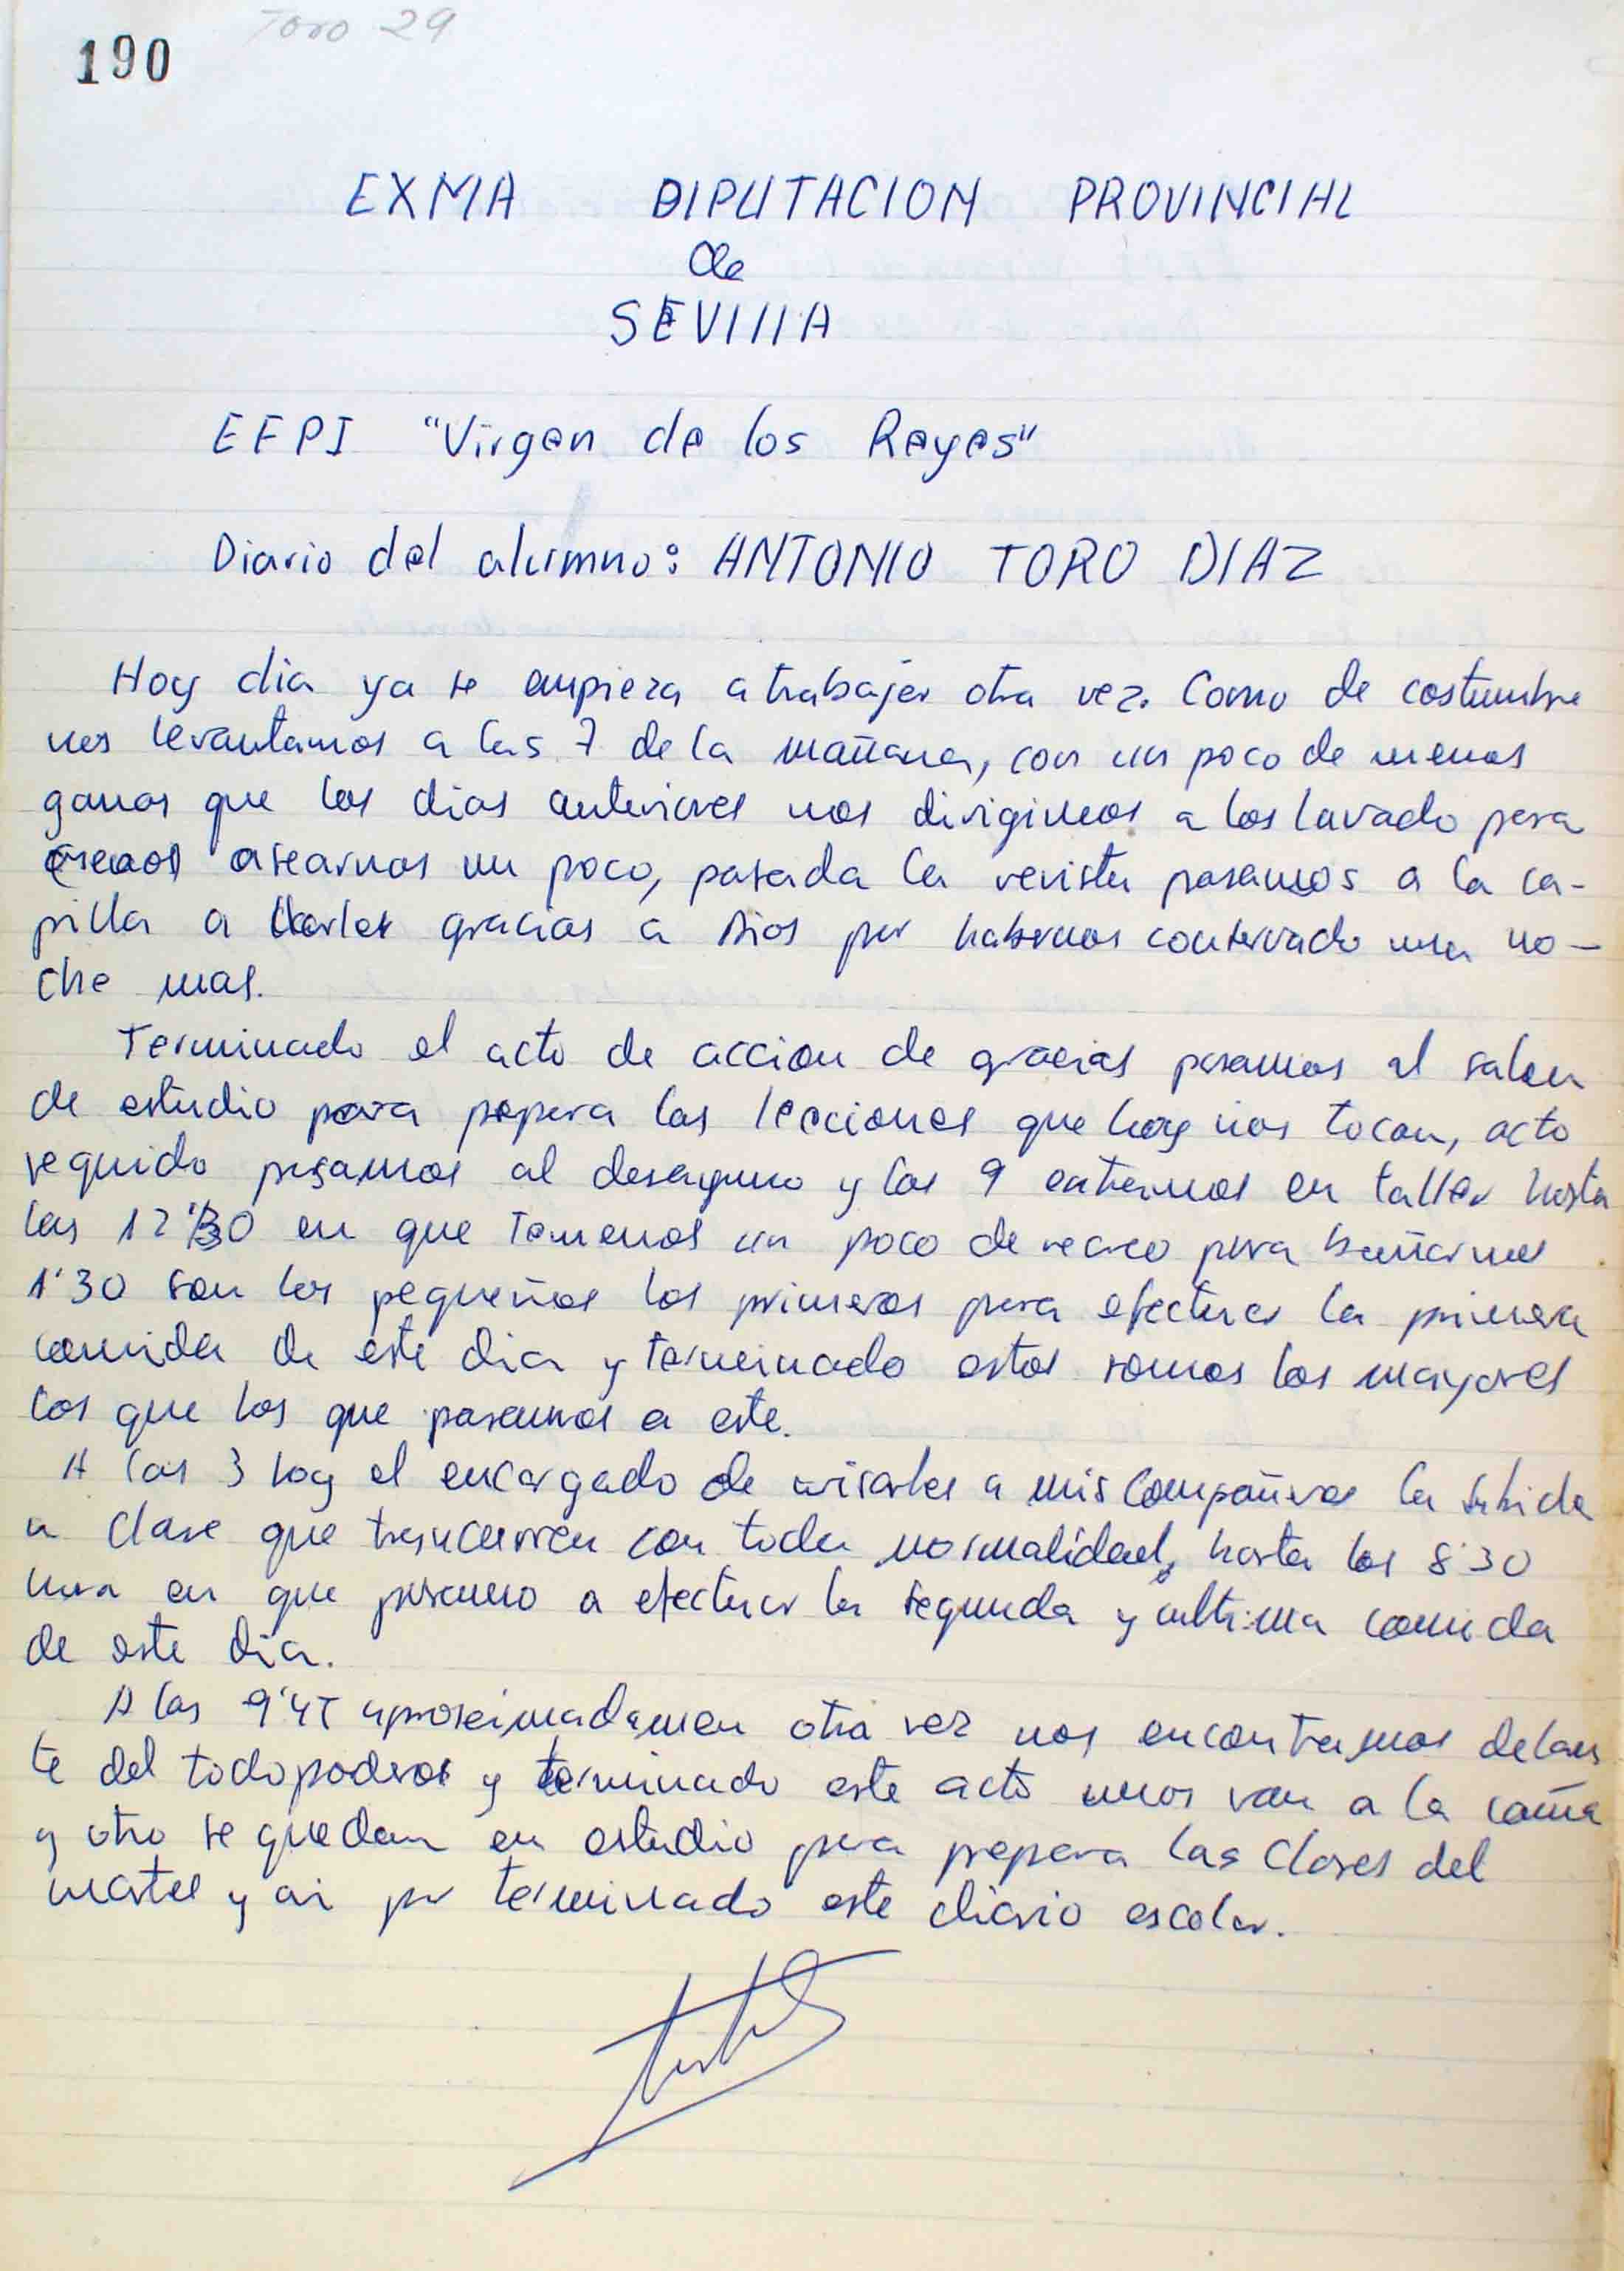 Toro 29
190
EXMA DIPUTACION PROVINCIAL
de
SEVIllA
EFPI "Virgen de los Reyes"
Diario del alumno: ANTONIO TORO DIAZ
Hoy dia ya se empieza a trabajar otra vez. Como de costumbre
nos levantamos a las 7 de la mañana, con un poco de menos
ganas que los dias anteriores nos dirigimos a los lavado para
asearnos un poco, pasada la revista pasamos a la ca-
pilla a darles gracias a Dios por habernos conservado una no-
che mas.
Terminado el acto de accion de gracias pasamos al salon
de estudio para prepara las lecciones que hoy nos tocan, acto
seguido pasamos al desayuno y las 9 entramos en taller hasta
las 12'30 en que tenemos un poco de recreo para bañarnos
1'30 son los pequeños los primeros para efectuar la primera
comida de este dia y terminado estos somos los mayores
los que los que pasamos a este.
A las 3 hoy el encargado de avisarles a mis compañeros la subida
a clase que trascurren con toda normalidad, hasta las 8'30
hora en que pasamo a efectuar la segunda y ultima comida
de este dia.
A las 9'45 aproximadamen otra vez nos encontramos delan
te del todopoderos y terminado este acto unos van a la cama
y otro se quedan en estudio para prepara las clases del
martes y asi por terminado este diario escolar.